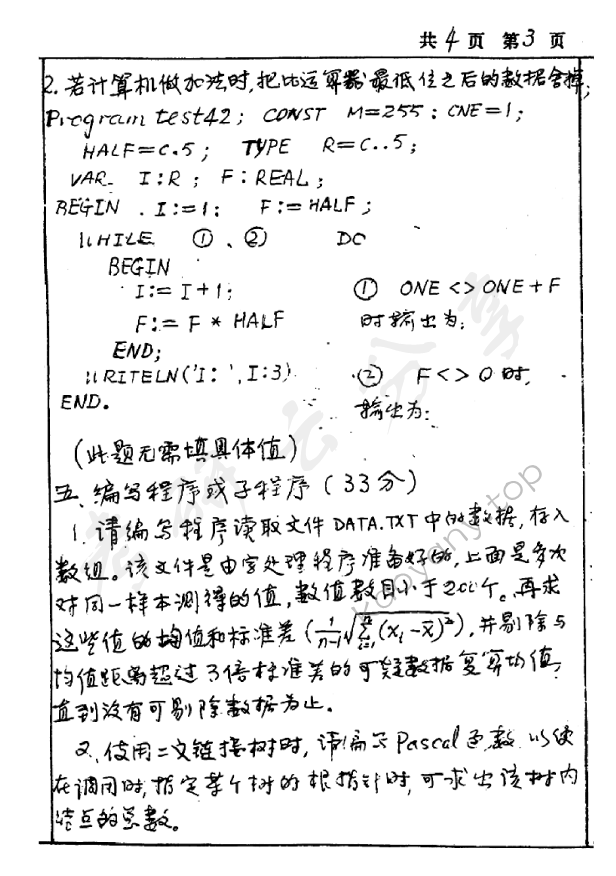 共 4 页 第 3 页
2. 若计算机做加法时,把比运算器最低位之后的数据舍掉;
Program test42; CONST M=255; ONE=1;
HALF=0.5; TYPE R=0..5;
VAR I:R; F:REAL;
BEGIN I:=1; F:=HALF;
WHILE ①、② DO
BEGIN
I:=I+1; ① ONE<>ONE+F
F:=F*HALF 时输出为:
END;
WRITELN('I:',I:3) ② F<>0时,
END. 输出为:
(此题无需填具体值)
五、编写程序或子程序(33分)
1. 请编写程序读取文件DATA.TXT中的数据,存入
数组。该文件是由字处理程序准备好的,上面是多次
对同一样本测得的值,数值数目小于200个。再求
这些值的均值和标准差(1/(n-1)√∑(xi-x̄)²),并剔除与
均值距离超过3倍标准差的可疑数据复算均值,
直到没有可剔除数据为止。
2. 使用二叉链接树时,请编写Pascal函数以使
在调用时,指定某个树的根指针时,可求出该树内
结点的总数。
考研云分享
kaoyany.top